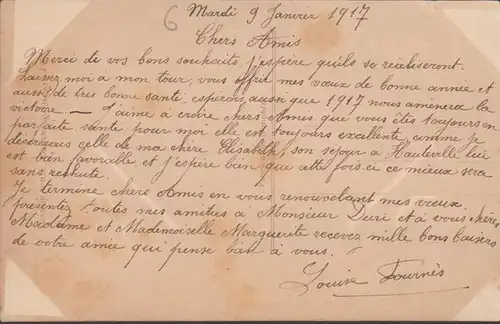 6
Mardi 9 Janvier 1917
Chers Amis
Merci de vos bons souhaits, j'espère qu'ils se réaliseront.
Laissez moi a mon tour, vous offrir mes vœux de bonne année et
aussi de très bonne santé; espérons aussi que 1917 nous amènera la
victoire. — J'aime à croire chers Amis que vous êtes toujours en
parfaite santé pour moi elle est toujours excellente, comme je
désirerais celle de ma chère Elisabeth, son séjour a Hauteville lui
est bien favorable et j'espère bien que cette fois ci ce mieux sera
sans rechute.
Je termine chers Amis en vous renouvelant mes vœux
présentez toutes mes amitiés à Monsieur Duri et à vous chère
Madame et Mademoiselle Marguerite recevez mille bons baisers
de votre amie qui pense bien à vous.
Louise Fournès